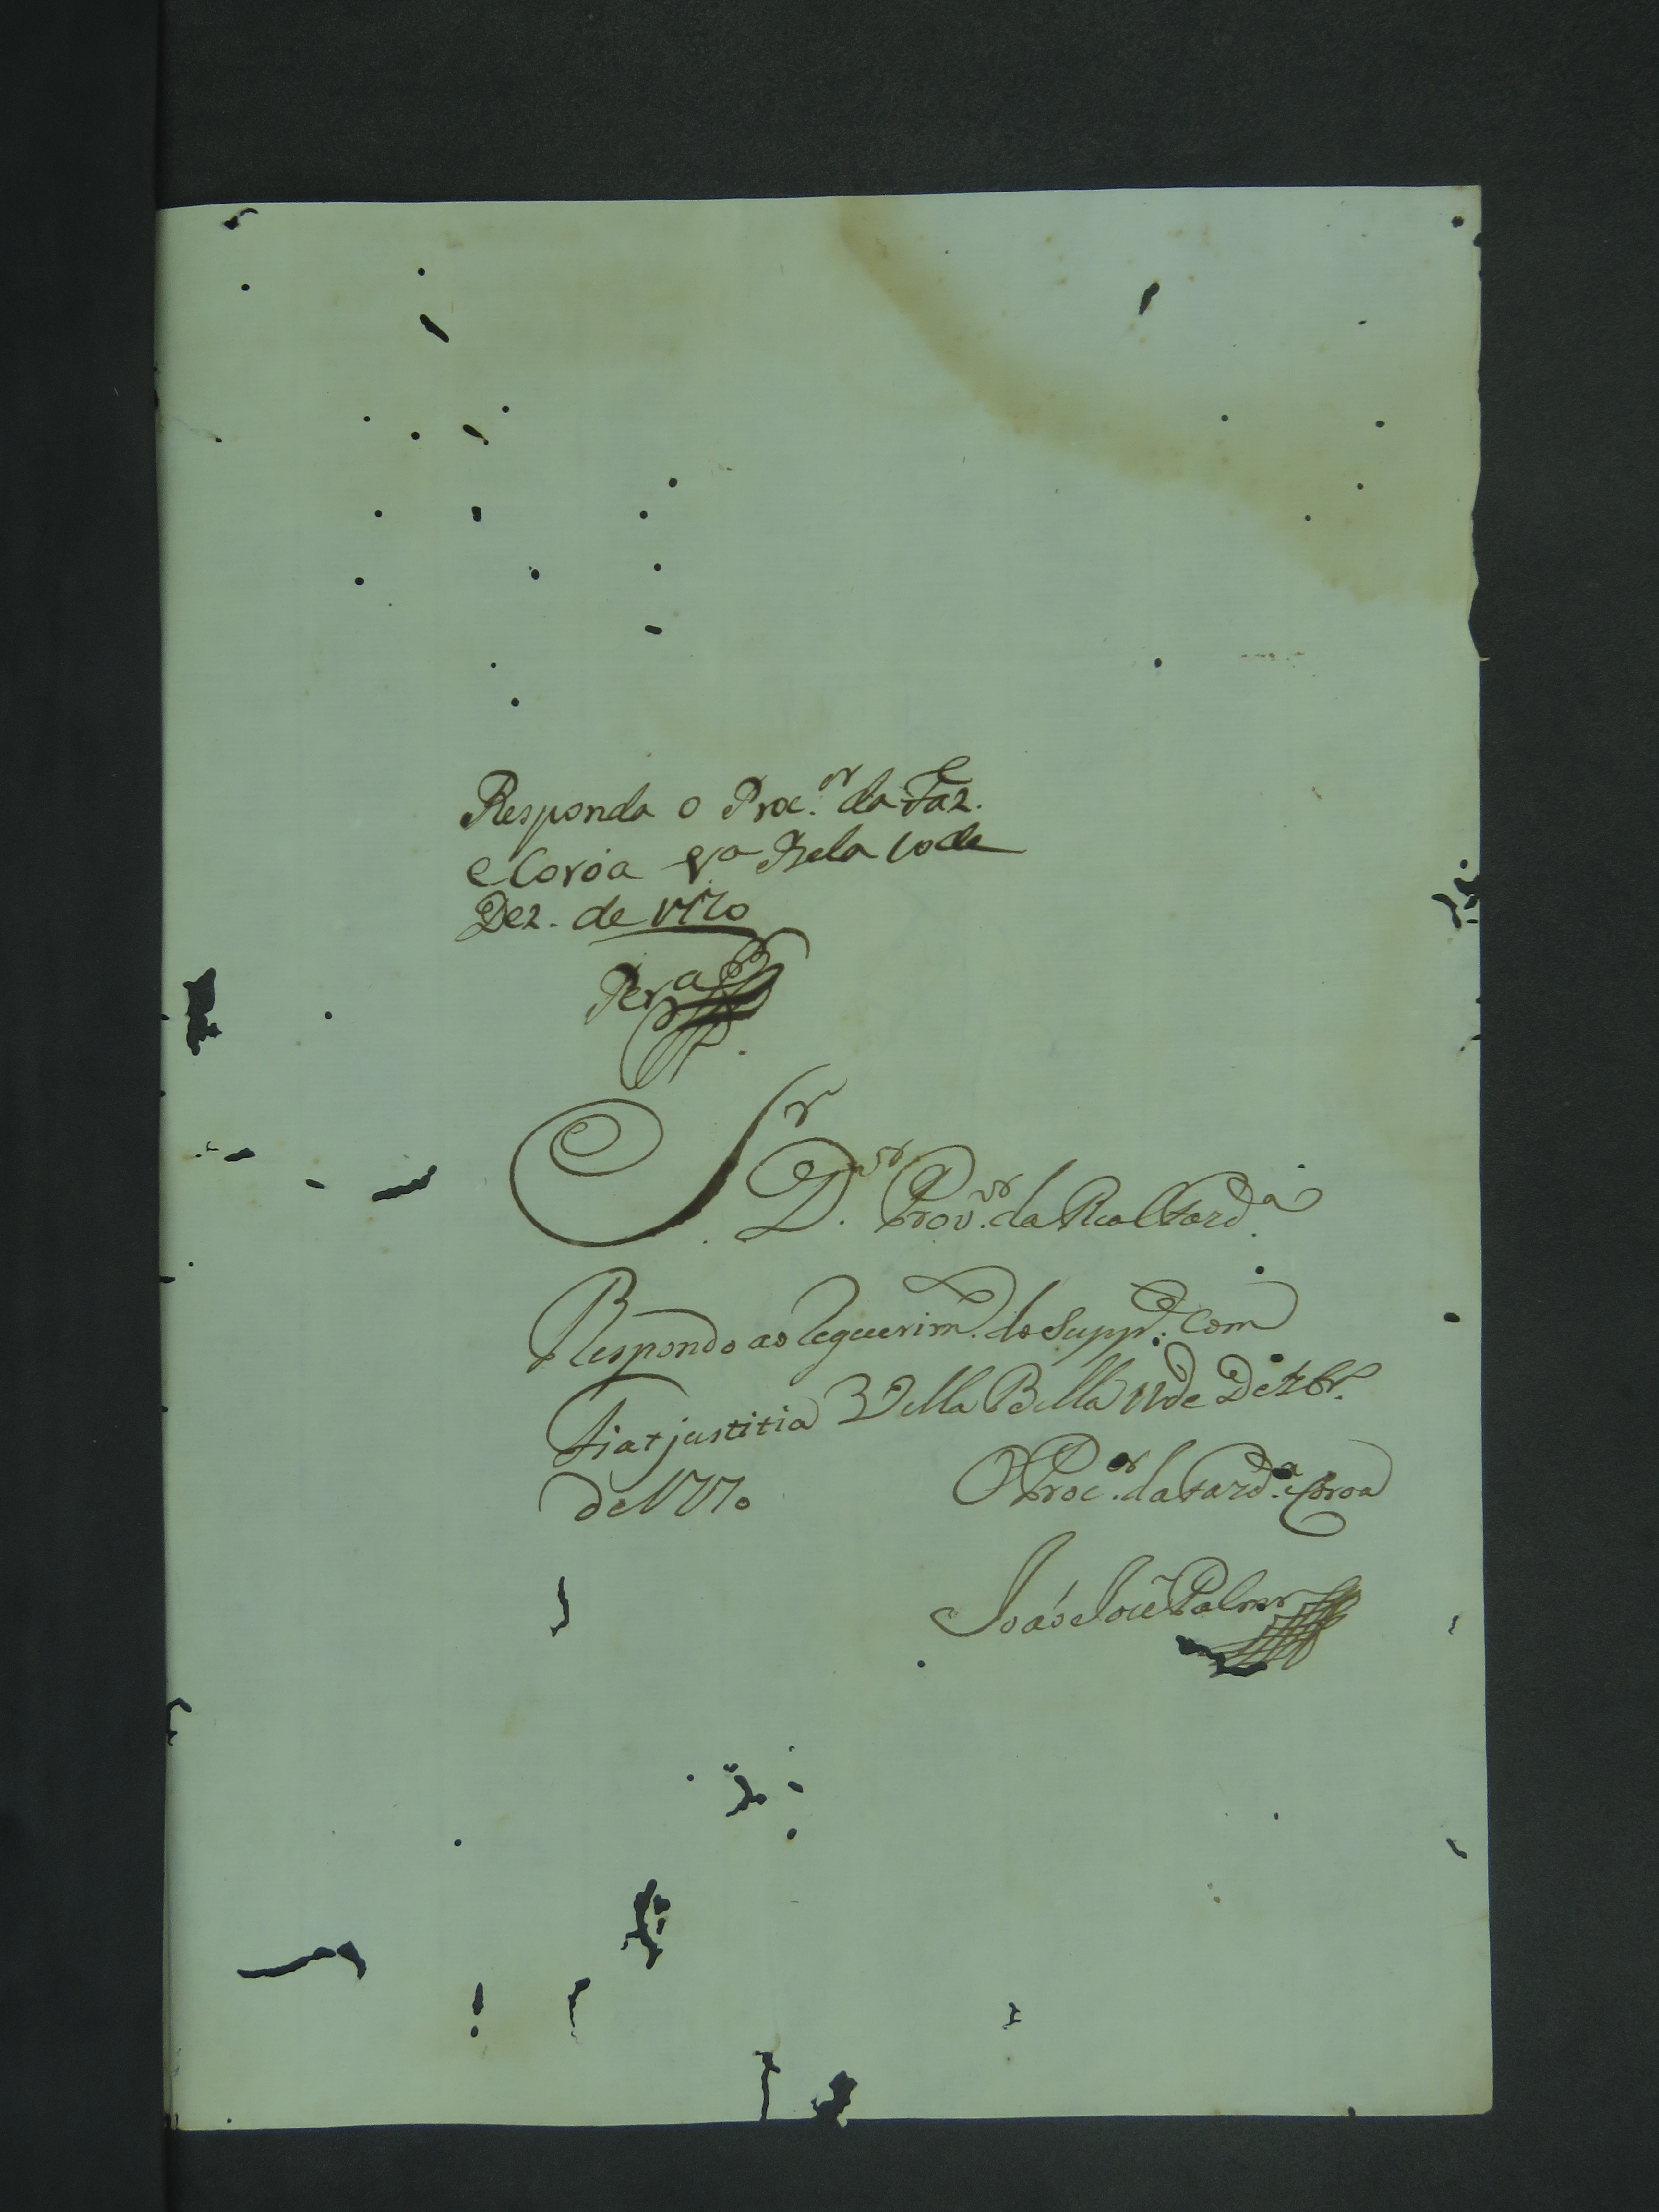 Responda o Proc.or da Faz.
e Coroa Va Bela 10 de
Dez. de 1770
Pera
Sr
D.or Prov.or da Real Fazd.a
Respondo ao requerim.to do Supp.te Com
fiat justitia Villa Bella 11 de Dezbr.
de 1770
O Proc.or da Fazd.a e Coroa
João José Palmr